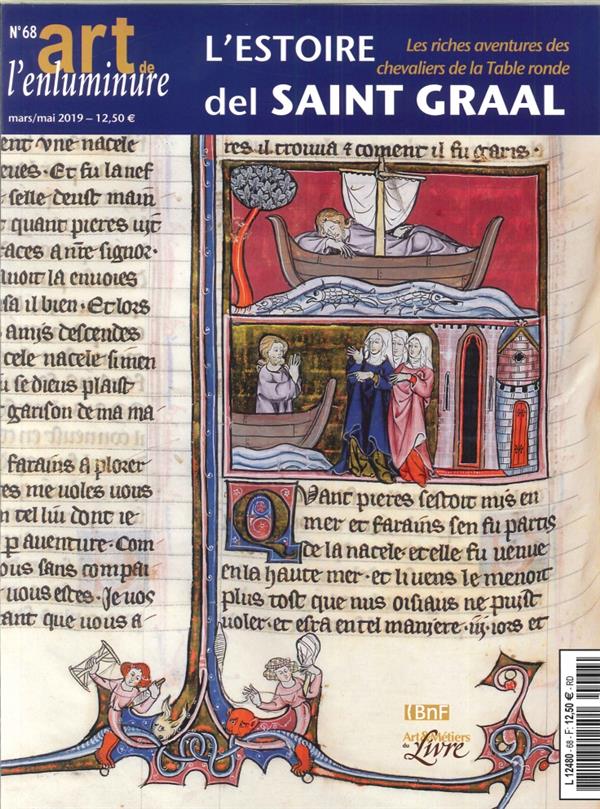 N°68
art de
l'enluminure
mars/mai 2019 – 12,50 €
L'ESTOIRE
del SAINT GRAAL
Les riches aventures des
chevaliers de la Table ronde
ent vne nacele
Et fu la nef
selle deust main
t quant pieres uit
races a nr̄e signor·
auoit la enuoies
sa il bien· Et lors
amis descendes
cele nacele si men
u se dieus plaist
garison de ma ma
farains a plorer
es me uoles uous
n tel liu dont ie
p auenture· Com
ous sans compai
uous estes· Je uos
ant que uous a-
res il trouua ⁊ coment il fu garis·
QVant pieres sestoit mis en
mer et farains sen fu partis
de la nacele· et elle fu uenue
en la haute mer· et li uens le menoit
plus tost que nus oisiaus ne puist
uoler· et esta en tel maniere· iiij· iors et
BnF
Art & Métiers
du Livre
L 12480 - 68 - F: 12,50 € - RD